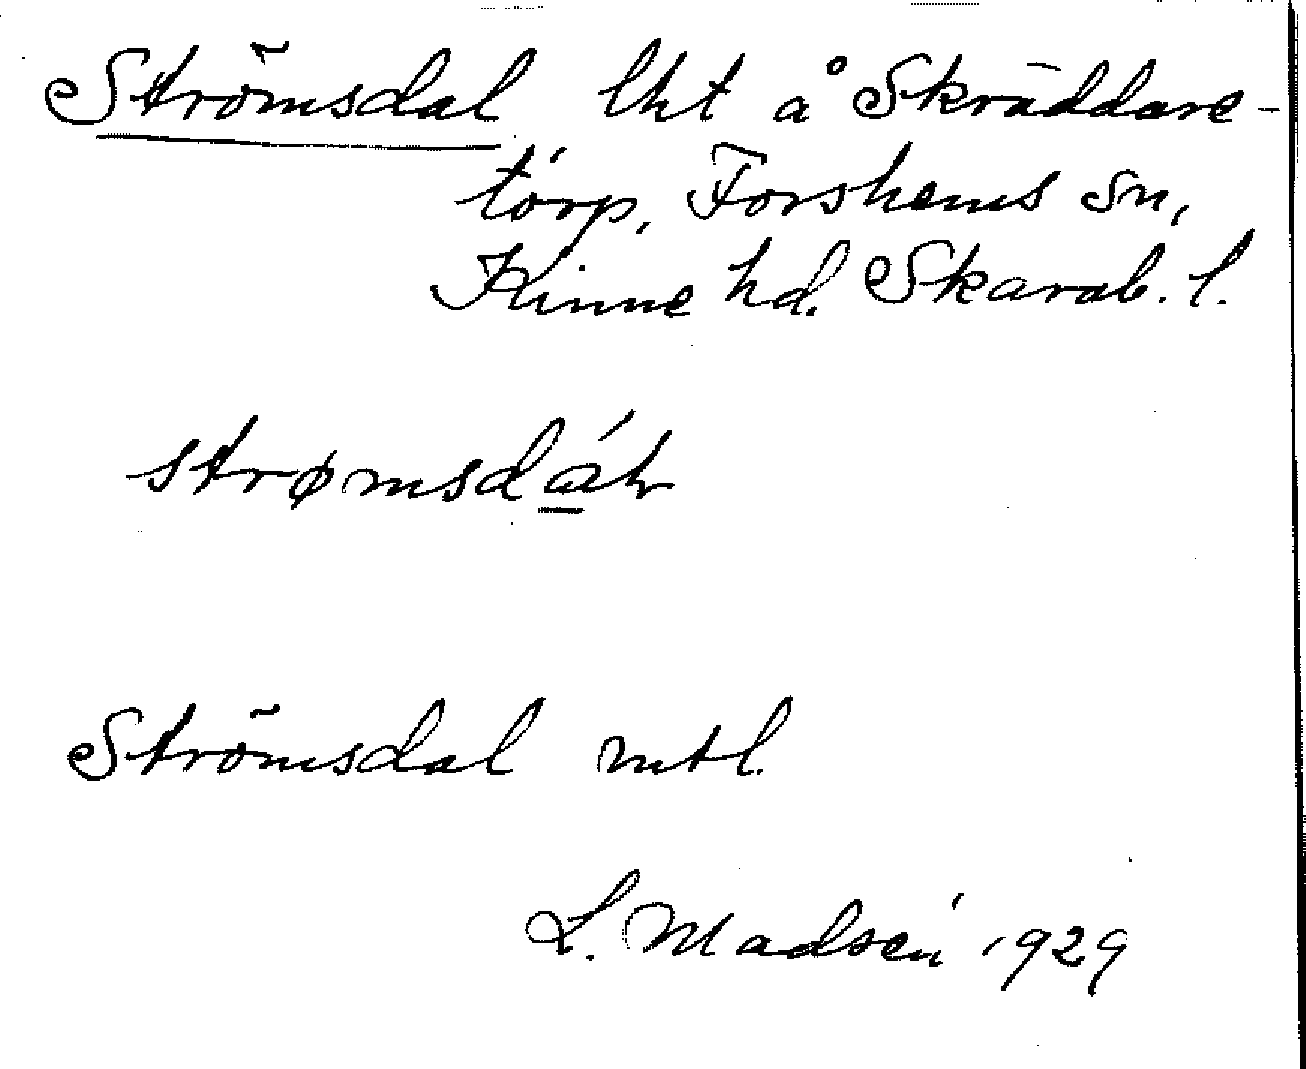 Strömsdal lht å Skräddare-
torp, Forshems sn,
Kinne hd. Skarab. l.
strømsdáḷ
Strömsdal mtl.
L. Madsén 1929